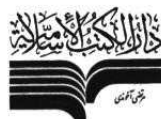 دار الكتب الإسلامية
مرتضى آخوندى